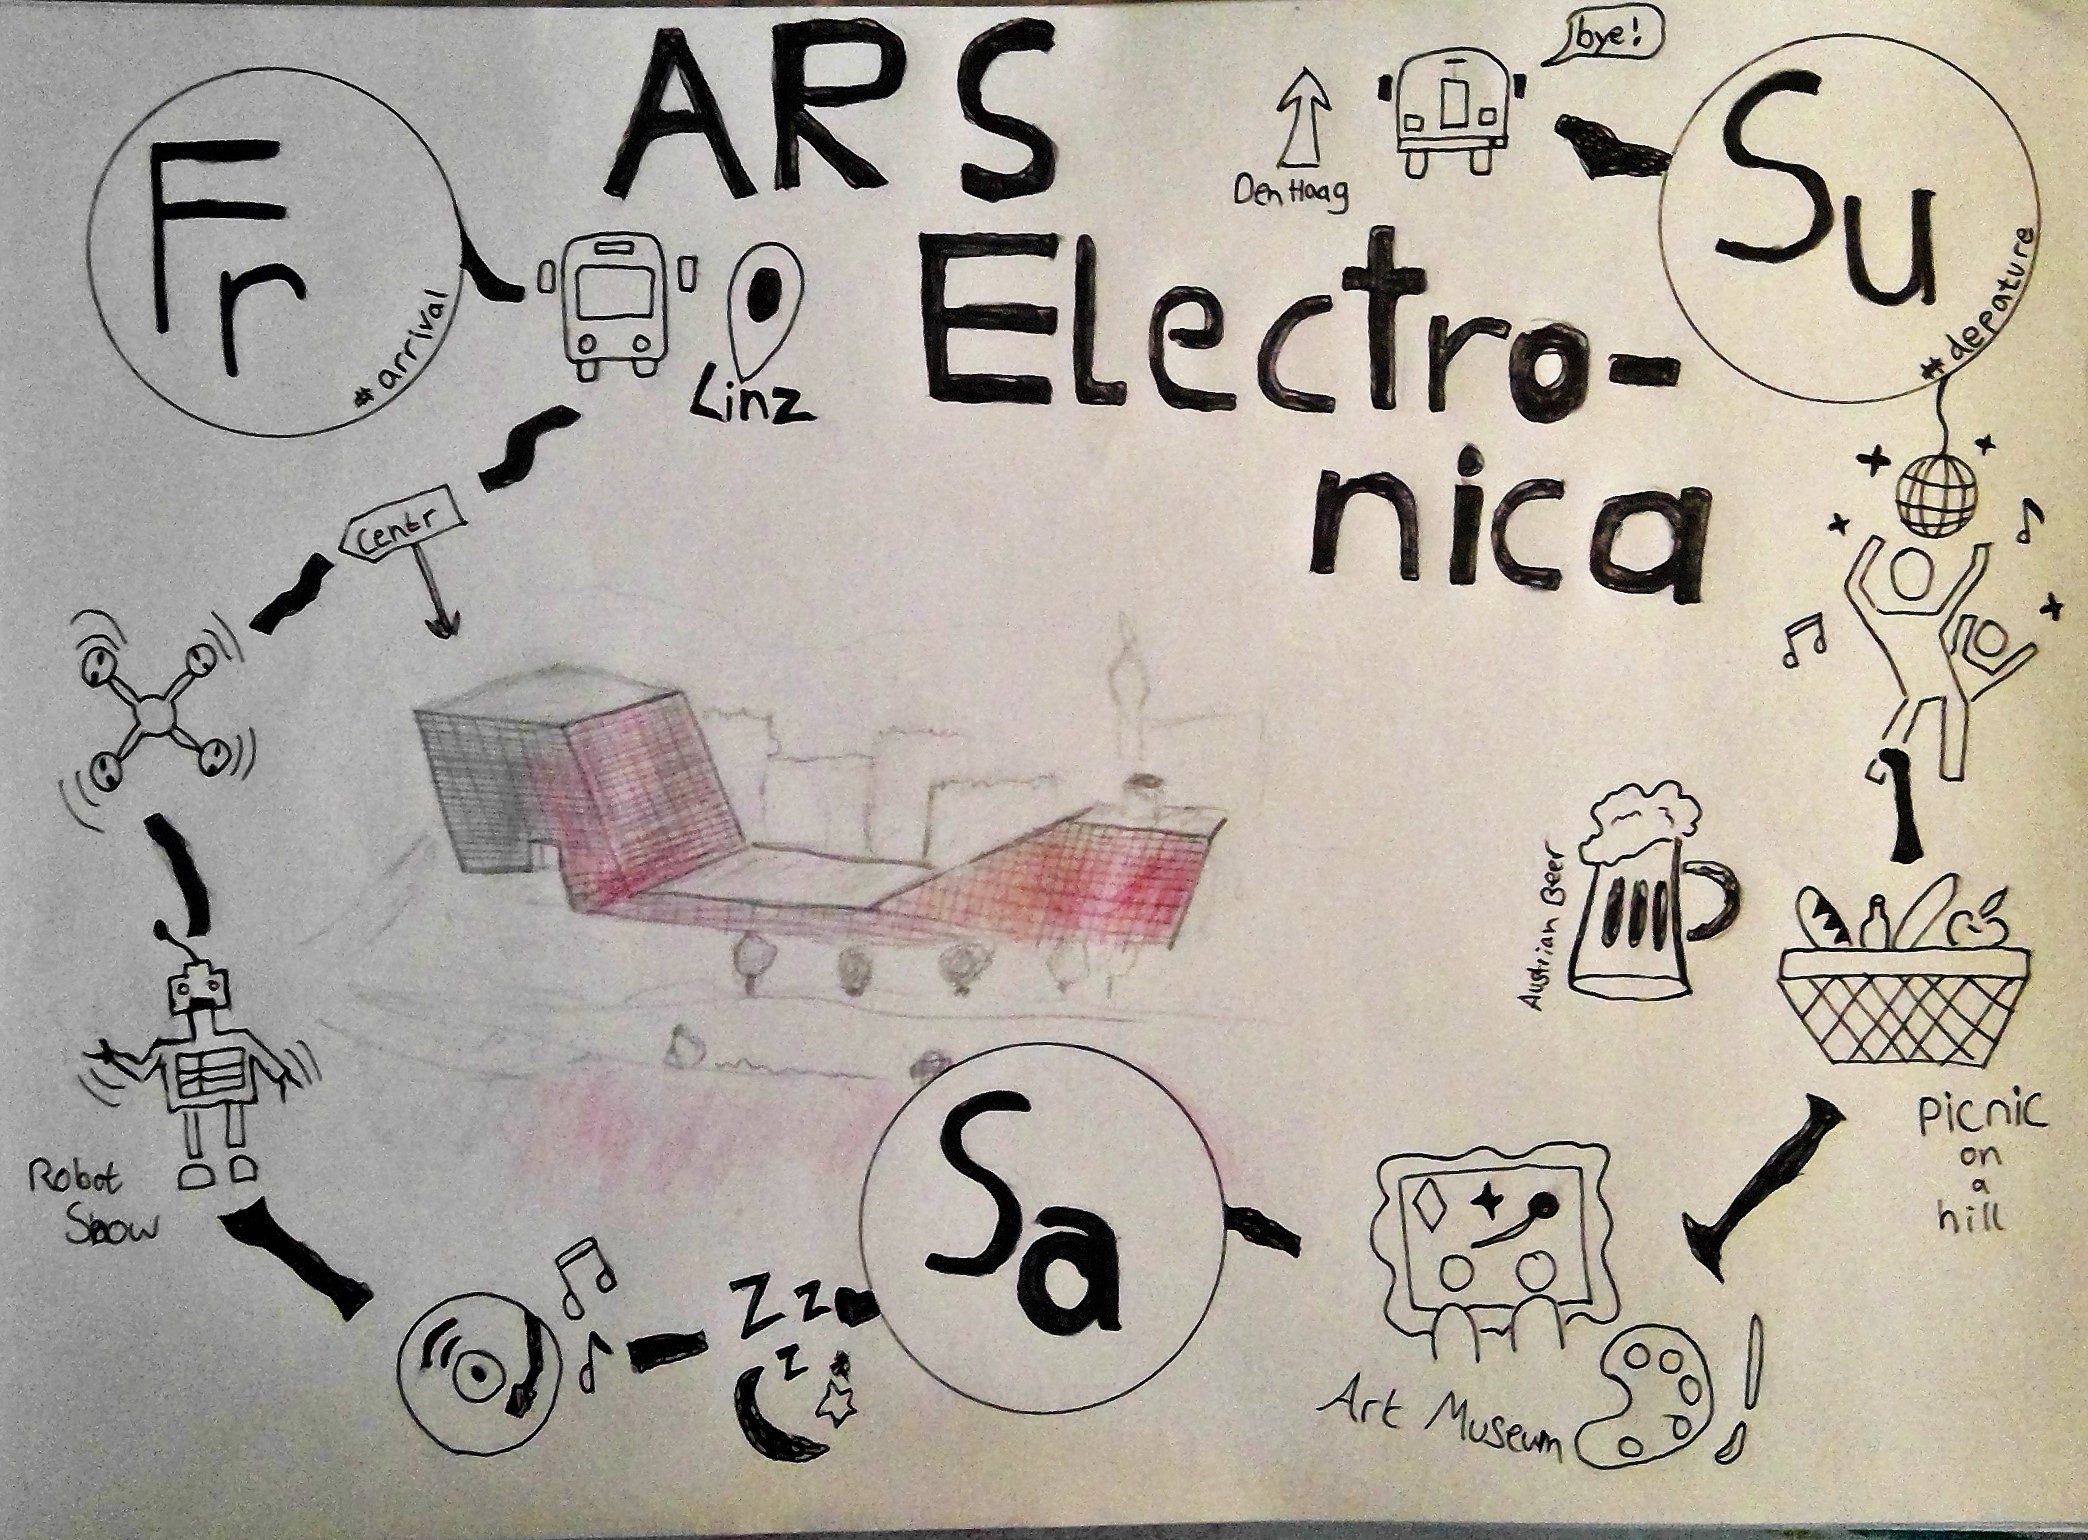 ARS
Electro-
nica
Fr
#arrival
Linz
Centr
Robot
Show
Zzz
Sa
Art Museum
Picnic
on
a
hill
Austrian Beer
Su
#depature
bye!
Den Haag